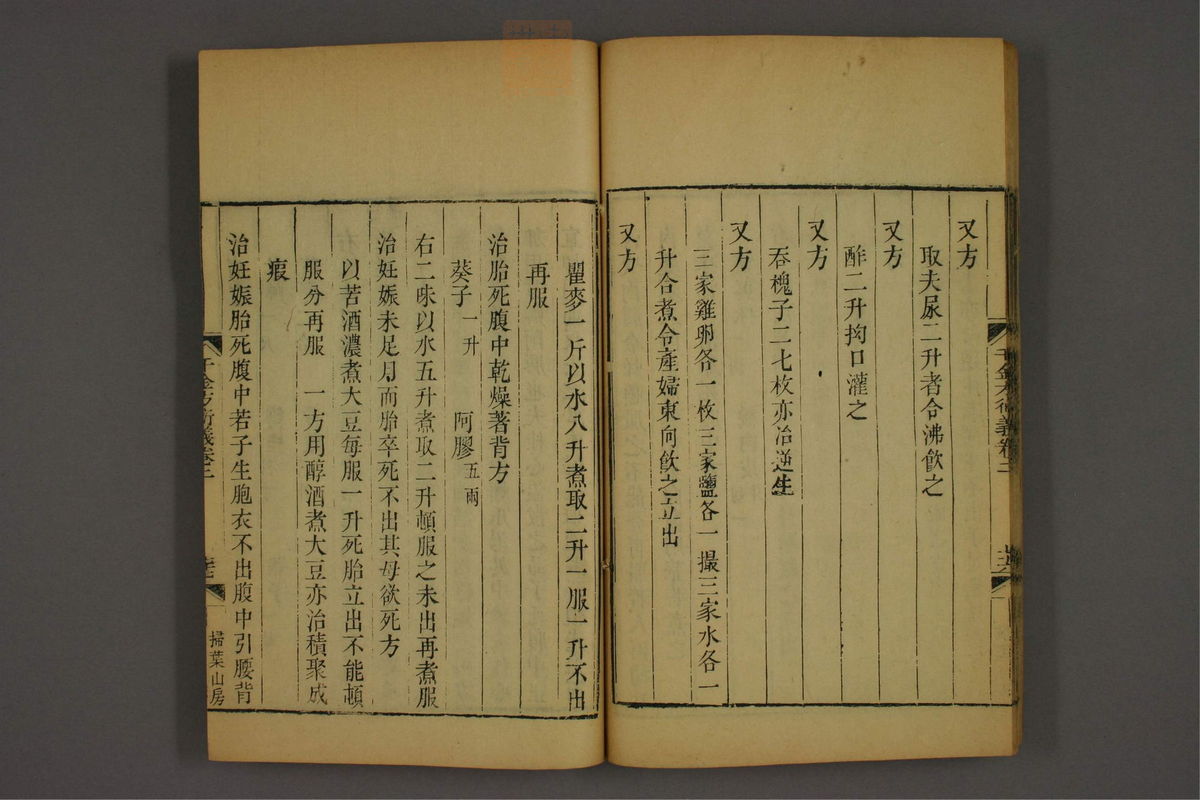 又方
取夫尿二升煮令沸飮之
又方
酢二升拘口灌之
又方
吞槐子二七枚亦治逆生
又方
三家雞卵各一枚三家鹽各一撮三家水各一
升合煮令產婦東向飮之立出
又方
瞿麥一斤以水八升煮取二升一服一升不出
再服
治胎死腹中乾燥著背方
葵子一升 阿膠五兩
右二味以水五升煮取二升頓服之未出再煮服
治妊娠未足月而胎卒死不出其母欲死方
以苦酒濃煮大豆每服一升死胎立出不能頓
服分再服 一方用醇酒煮大豆亦治積聚成
瘕
治妊娠胎死腹中若子生胞衣不出腹中引腰背
千金方衍義卷二
掃葉山房